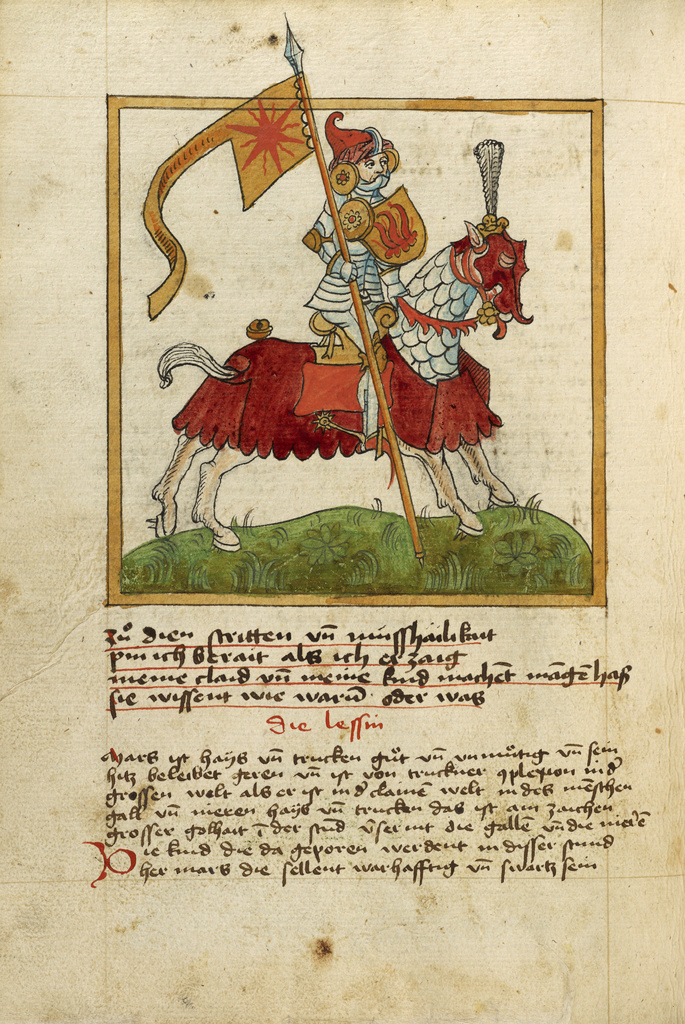 zů dien stritten vn̄ misshailikait
pin ich berait als ich erzaig
meine claid vn̄ meine kind machent māgē hass
sie wissent wie warū oder was
die lessin
Mars ist hays vn̄ trucken gůt vn̄ vnmůtig vn̄ sein
hitz beleibet geren vn̄ ist von truckner 9plexion in d̕
grossen welt als er ist in d̕ clainē welt in des mēschen
gall vn̄ nieren hays vn̄ trucken das ist am zaichen
grosser galhait ī der stūd die gallē vn̄ die nierē
Die kind die da geporen werdent in disser stund
her mars die sellent warhafftig vn̄ swartz sein